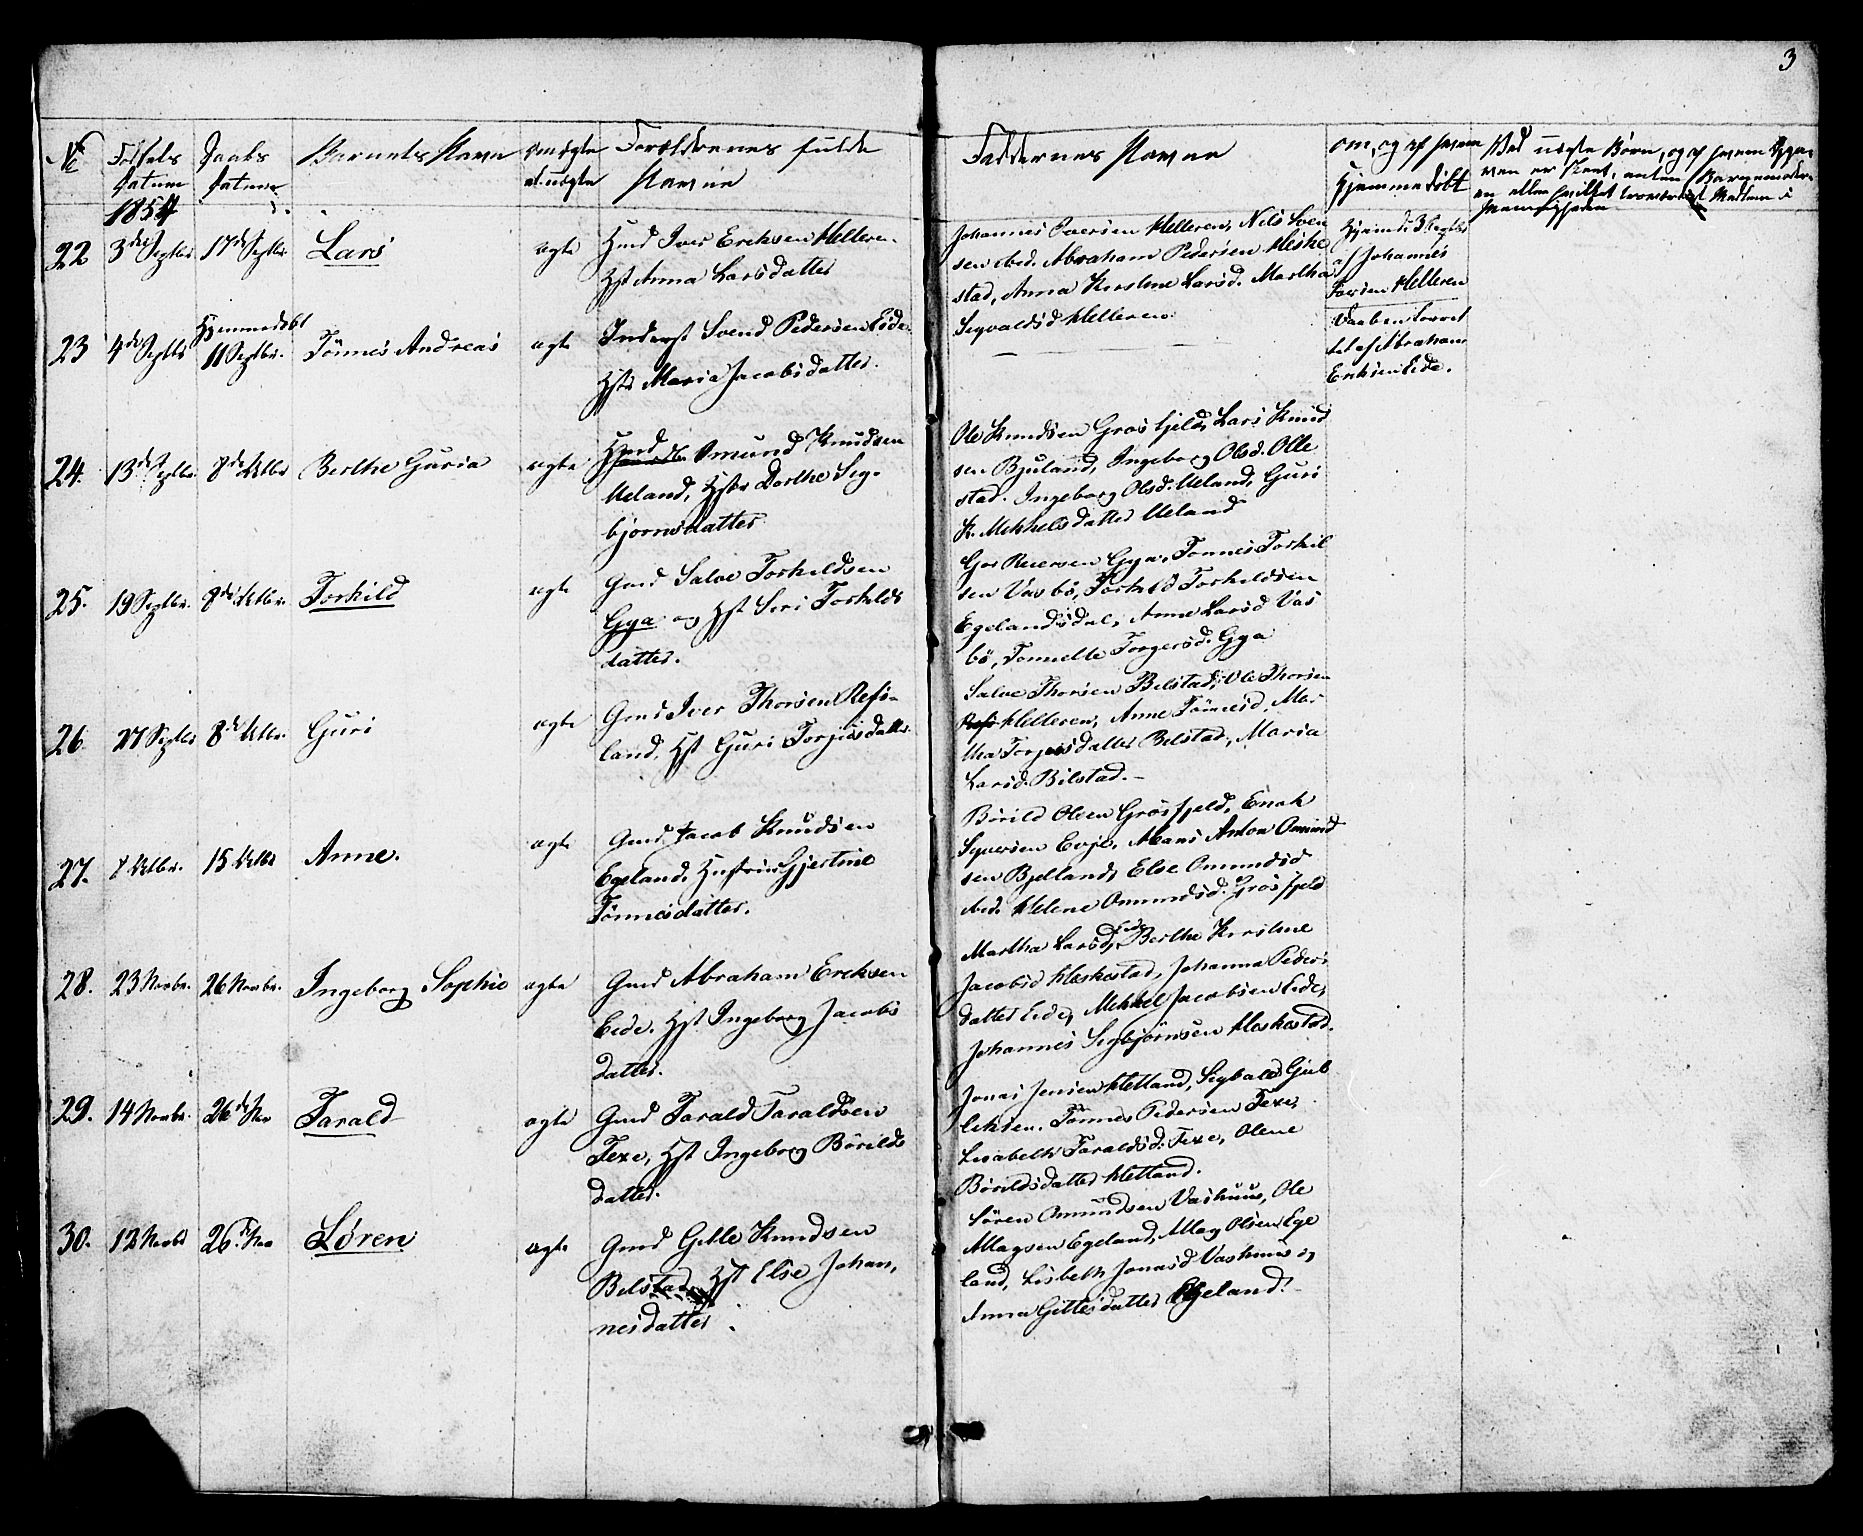 3
No
Fødsels
Datum
1854
Daabs
Datum
Barnets Navn
om ægte
el. uægte
Forældrenes fulde
Navne
Faddernes Navne
om, og af hvem
hjemmedøbt
Ved uægte Børn, og af hvem Opga-
22
3die Septbr
17de Septbr.
Lars
ægte
Gmd Iver Erichsen Helleren.
Hst Anna Larsdatter
Johannes Iversen Helleren, Nils Sven
sen ibid. Abraham Pedersen Heske
stad, Anna Kirstine Larsd. Martha
Sigvaldsd Helleren.
Hjemmd. 3 Septbr
af Johannes
Iversen Helleren
23
4de Septbr
Hjemmedøbt
11 Septbr.
Tönnes Andreas
ægte
Inderst Svend Pedersen Eide.
Hstr Maria Jacobsdatter.
Abraham
Erichsen Eide.
24.
13de Septbr
8de Octbr
Berthe Guria
ægte
Gmd Omund Knudsen
Ueland, Hstr Dorthe Sig-
bjornsdatter
Ole Knudsen Grosfjeld, Lars Knud
sen Bjuland, Ingeborg Olsd. Olle
stad. Ingeborg Olsd. Ueland, Guri
K. Mikkelsdatter Ueland
25.
19 Septbr.
8de Octbr.
Torkild
ægte
Gmd Salve Torkildsen
Gya og Hst Siri Torkilds
datter.
Reiersen Gya, Tonnes Torkil
sen Vasbö, Torkild Torkildsen
Egelandsdal, Anne Larsd Vas
bö, Tonnette Torgersd. Gya
26.
27 Septbr
8de Octbr.
Guri
ægte
Gmd Iver Thorsen Refs-
land, Hst Guri Torjusdatter.
Salve Thorsen Bilstad, Ole Thorsen
Helleren, Anne Tönnesd, Mar
tha Torjusdatter Bilstad, Maria
Larsd. Bilstad.-
27.
1 Octbr.
15 Octbr
Anne.
ægte
Gmd Jacob Knudsen
Egeland, Hustrue Gjertine
Tönnesdatter.
Börild Olsen Grösfjeld, Enok
Sivertsen Evje, Hans Anton Omund
sen Bjelland, Else Omundsd
ibid. Helene Omundsd. Grösfjeld
28.
23 Novbr.
26 Novbr.
Ingeborg Sophie
ægte
Gmd Abraham Erichsen
Eide. Hst Ingeborg Jacobs
datter.
Martha Larsd, Eide Berthe Kirstine
Jacobsd Heskestad, Johanna Peders
datter Eide, Mikkel Jacobsen Eide,
Johannes Sigbjörnsen Heskestad.
29.
14 Novbr.
26de Nov
Tarald
ægte
Gmd Tarald Taraldsen
Texe, Hst Ingeborg Börilds
datter.
Jonas Jensen Hetland, Sigbald Gub
leksen. Tönnes Pedersen Texe,
Lisabeth Taraldsd. Texe, Olene
Börildsdatter Hetland.
30.
12 Novbr
26de Nov
Sören
ægte
Gmd Gitle Knudsen
Bilstad, Hst Else Johan,
nesdatter.
Sören Omundsen Vashuus, Ole
Aslagsen Egeland, Aslag Olsen Ege
land, Lisbeth Jonasd Vashuus og
Anna Gitlesdatter Egeland.